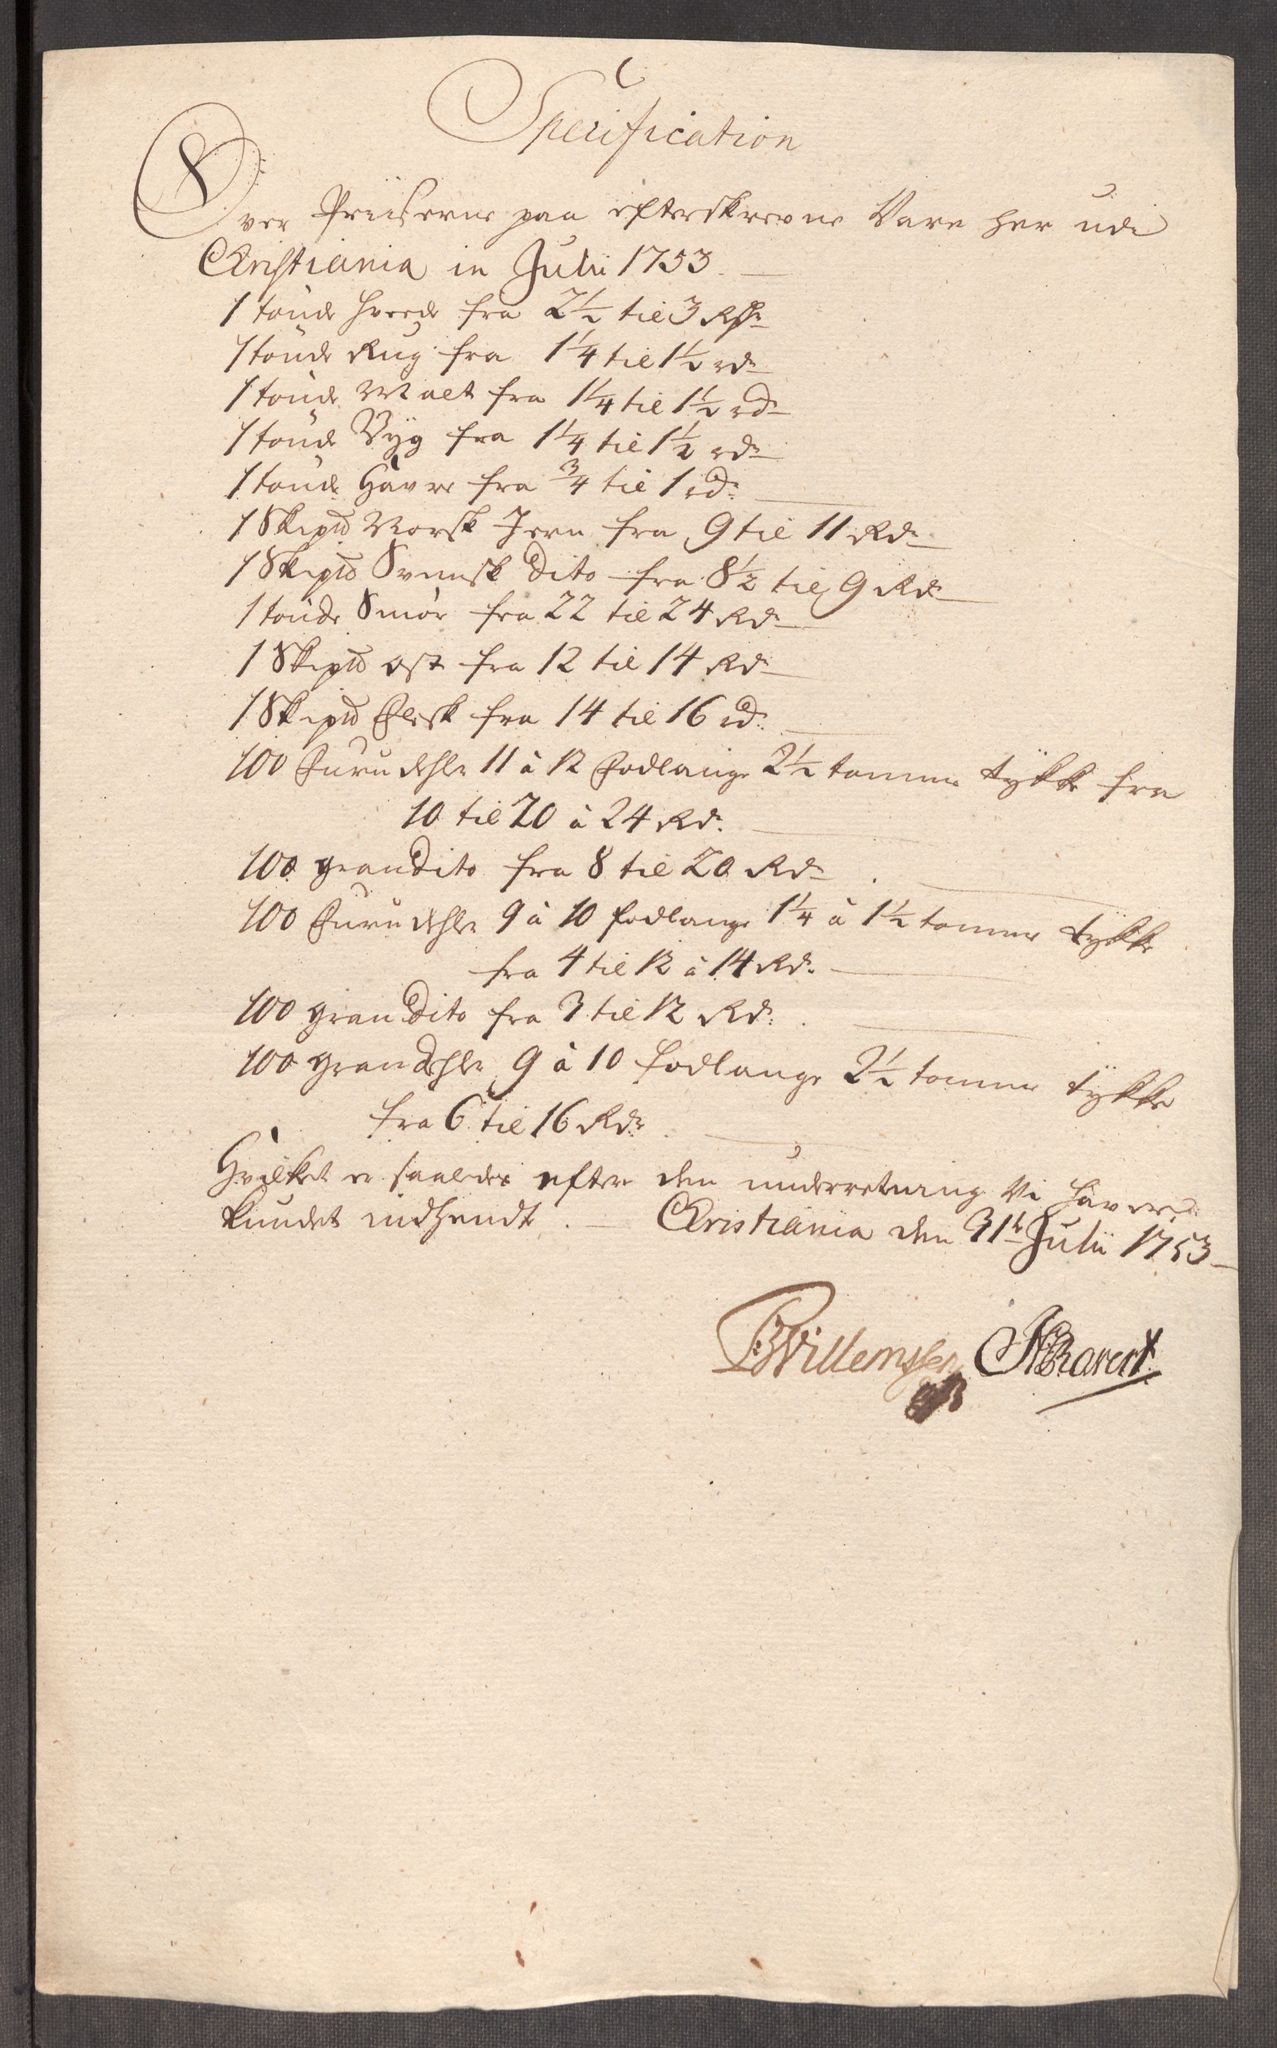 Specification
Over Priiserne paa efterskrevne Vare her udi
Christiania in Julii 1753.
1 tønde Hvede fra 2½ til 3 Rdr
1 tønde Rug fra 1¼ til 1½ rdr
1 tønde Malt fra 1¼ til 1½ rdr
1 tønde Byg fra 1¼ til 1½ rdr
1 tønde Havre fra ¾ til 1 rdr
1 Skipd Norsk Jern fra 9 til 11 Rdr
1 Skipd Svensk Dito fra 8½ til 9 Rdr
1 tønde Smør fra 22 til 24 Rdr
1 Skipd Ost fra 12 til 14 Rdr
1 Skipd Flesk fra 14 til 16 rdr
100 Furu dehler 11 à 12 Fodlange 2½ tomme tykke fra
10 til 20 à 24 Rdr.
100 gran Dito fra 8 til 20 Rdr
100 Furu dehler 9 à 10 fodlange 1¼ à 1½ tomme tykke
fra 4 til 12 à 14 Rdr.
100 gran Dito fra 3 til 12 Rdr.
100 gran dehler 9 à 10 fodlange 2½ tomme tykke
fra 6 til 16 Rdr
Hvilket er saaledes efter den underretning Vi haver
kundet indhendt. Christiania den 31te Julii 1753
BWillemssen Ravert